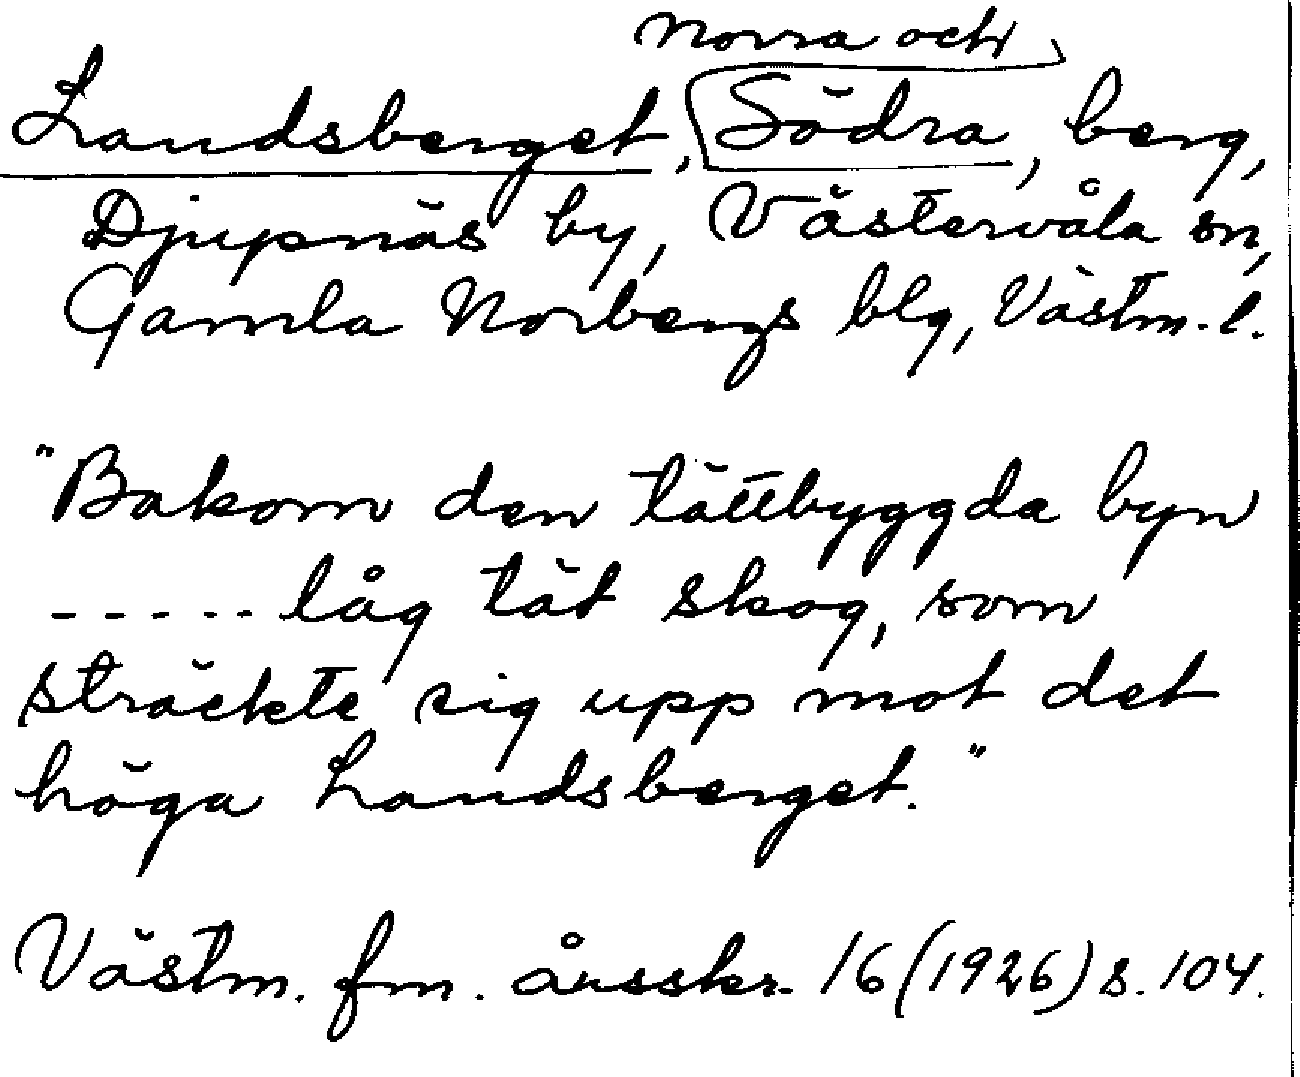 Norra och
Landsberget, Södra, berg,
Djupnäs by, Västervåla sn,
Gamla Norbergs blg, Västm. l.
"Bakom den tättbyggda byn
- - - - - låg tät skog, som
sträckte sig upp mot det
höga Landsberget."
Västm. fm. årsskr. 16 (1926) s. 104.